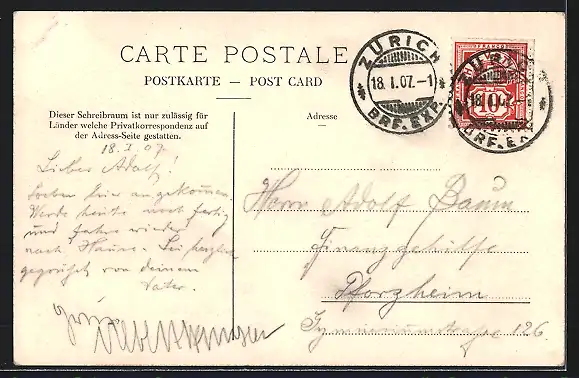 CARTE POSTALE
POSTKARTE — POST CARD
ZÜRICH
18.I.07.-1
BRF.EXP.
FRANCO
10
18.I.07.
BRF.EXP.
Dieser Schreibraum ist nur zulässig für
Länder welche Privatkorrespondenz auf
der Adress-Seite gestatten.
Adresse
18.I.07.
Lieber Adolf!
Soeben hier angekommen.
Werde heute noch fertig
und fahre wieder
nach Hause. Sei herzlich
gegrüßt von deinem
Vater.
Herrn Adolf Baum
Finanzgehilfe
Pforzheim
Gymnasiumstraße 126.